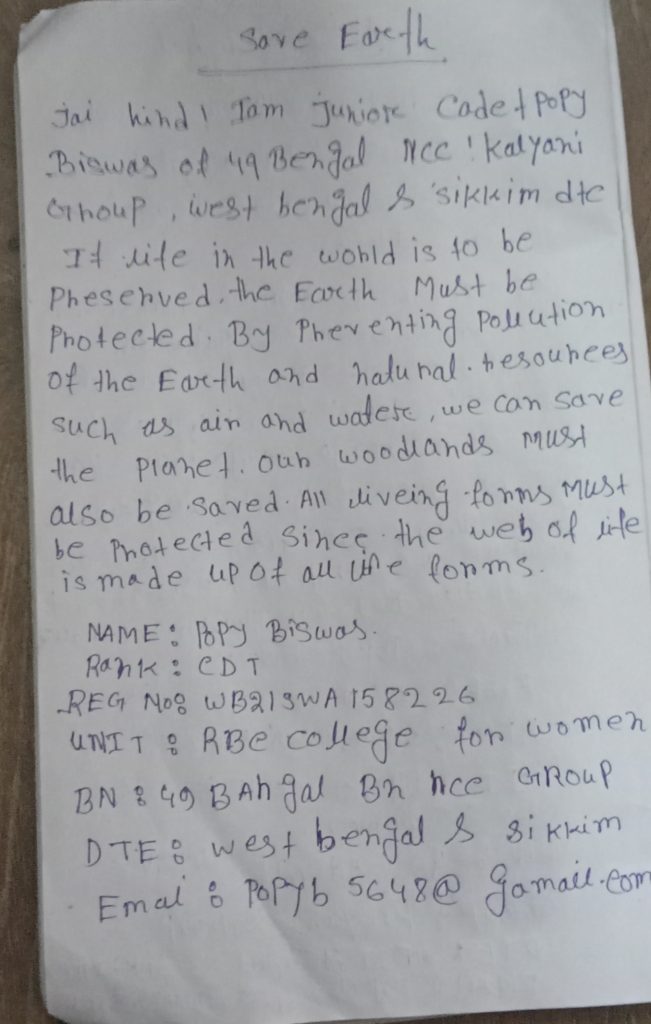 Save Earth
Jai hind! Iam juniore Cadet Popy
Biswas of 49 Bengal Ncc! Kalyani
Group, west bengal & sikkim dte
If life in the world is to be
Preserved. the Earth Must be
Protected. By Preventing Pollution
of the Earth and natural. resources
such as air and watere, we can save
the Planet. our woodlands Must
also be saved. All liveing forms Must
be Protected since the web of life
is made up of all life forms.
NAME: Popy Biswas.
Rank: CDT
REG No: WB21SWA158226
UNIT: RBC college for women
BN: 49 BAngal Bn ncc GROUP
DTE: west bengal & sikkim
Emal: Popyb5648@gamail.com